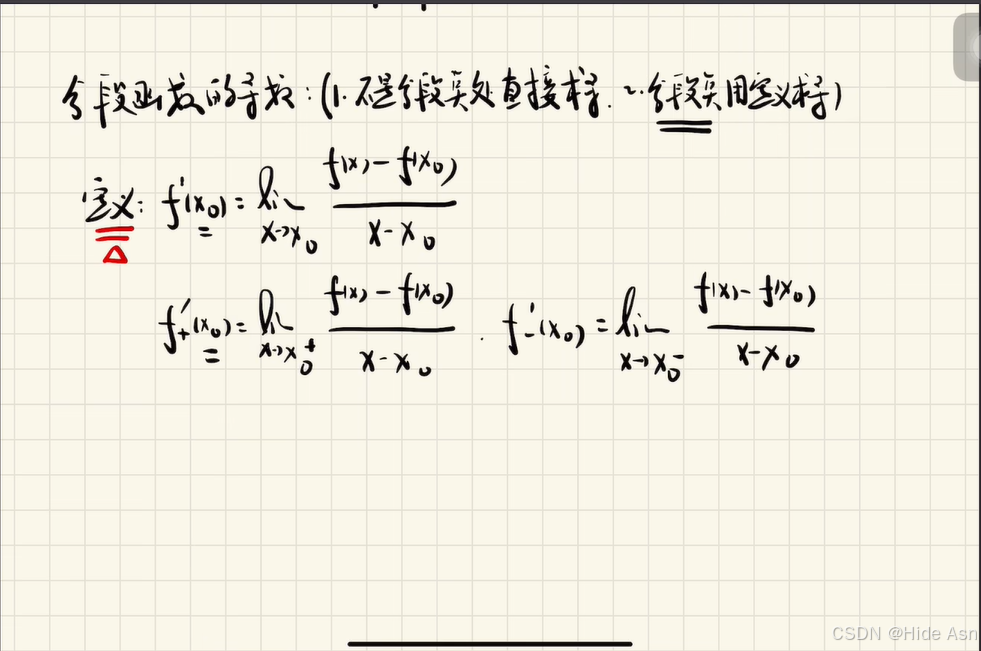 分段函数的导数:(1.不是分段点处直接求导. 2.分段点用定义求导)
定义: f'(x₀) = lim x→x₀ f(x)-f(x₀) / x-x₀
f₊'(x₀) = lim x→x₀⁺ f(x)-f(x₀) / x-x₀ . f₋'(x₀) = lim x→x₀⁻ f(x)-f(x₀) / x-x₀
CSDN @Hide Asn